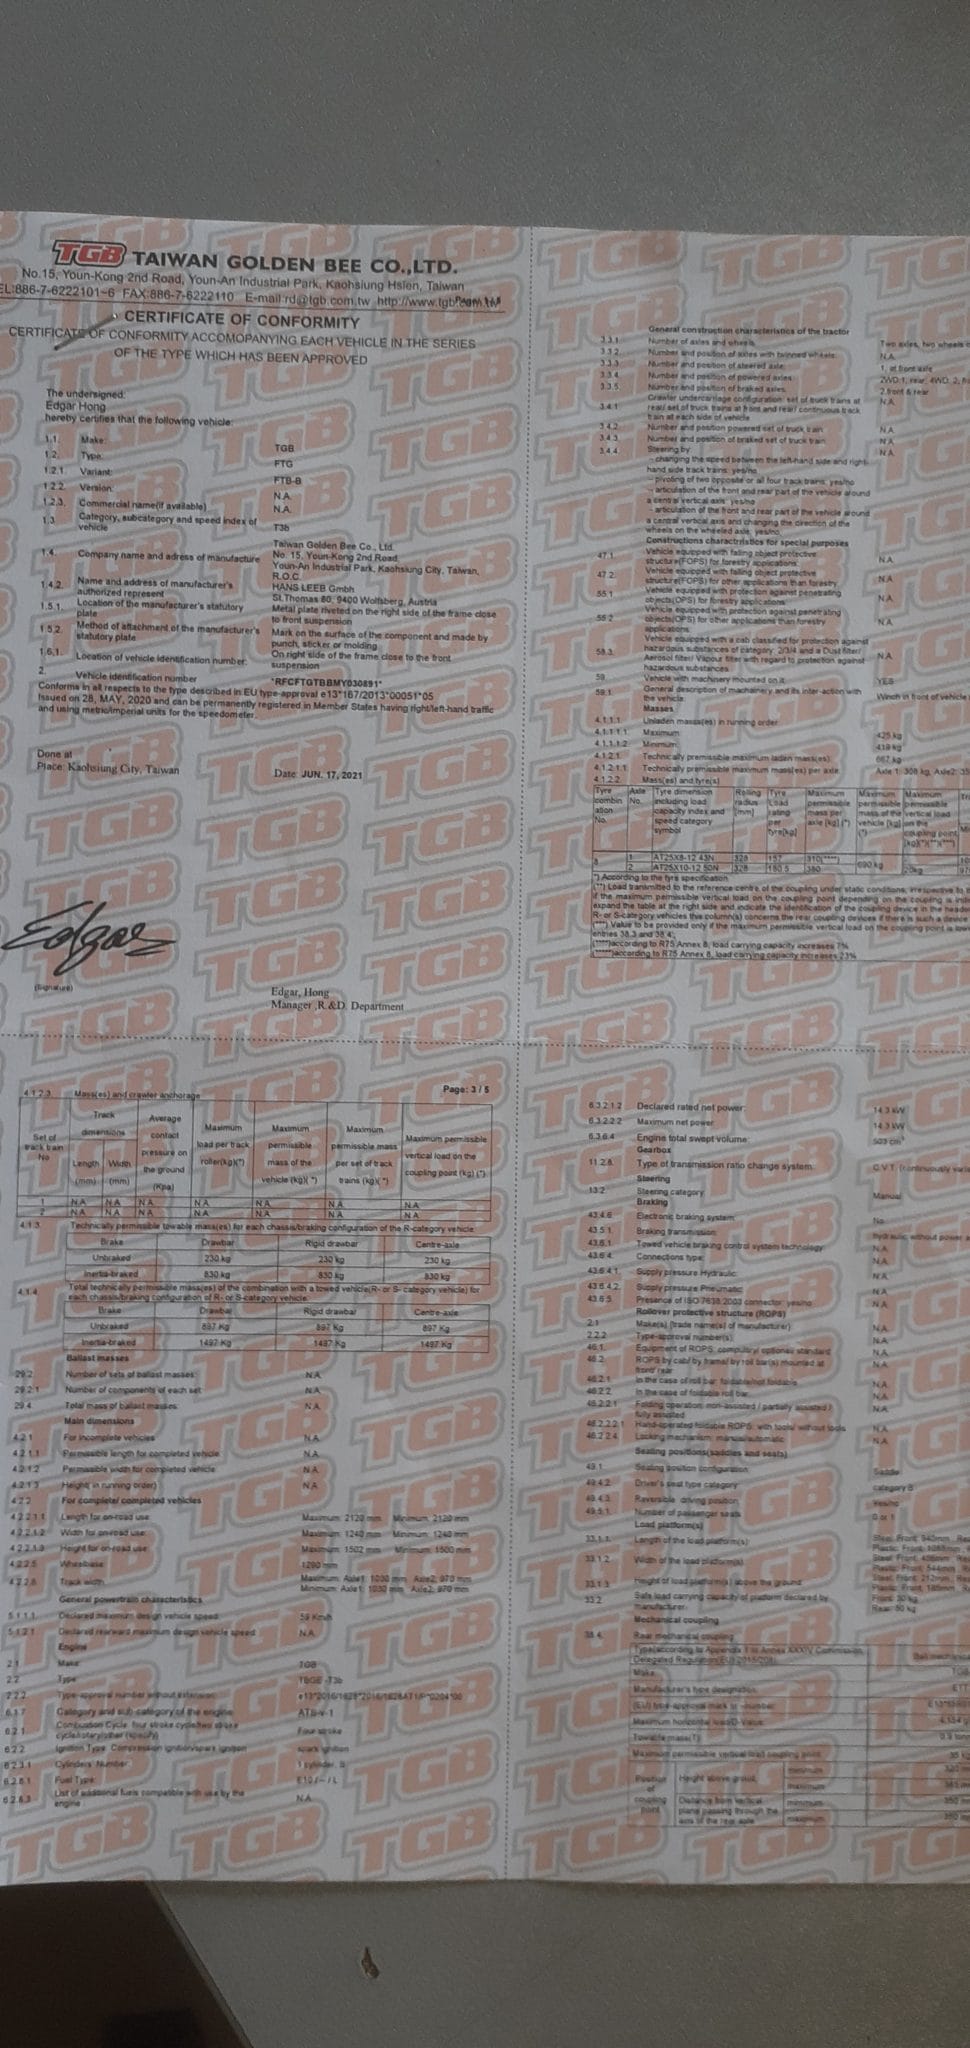 TGB TAIWAN GOLDEN BEE CO.,LTD.
No.15, Youn-Kong 2nd Road, Youn-An Industrial Park, Kaohsiung Hsien, Taiwan
EL:886-7-6222101~6 FAX:886-7-6222110 E-mail:rd@tgb.com.tw http://www.tgb.com.tw
CERTIFICATE OF CONFORMITY
CERTIFICATE OF CONFORMITY ACCOMOPANYING EACH VEHICLE IN THE SERIES
OF THE TYPE WHICH HAS BEEN APPROVED
The undersigned:
Edgar Hong
hereby certifies that the following vehicle:
1.1. Make: TGB
1.2. Type: FTG
1.2.1. Variant: FTB-B
1.2.2. Version: N.A.
1.2.3. Commercial name(if available) N.A.
1.3. Category, subcategory and speed index of vehicle T3b
1.4. Company name and adress of manufacture Taiwan Golden Bee Co., Ltd.
No. 15, Youn-Kong 2nd Road,
Youn-An Industrial Park, Kaohsiung City, Taiwan,
R.O.C.
1.4.2. Name and address of manufacturer's authorized represent HANS LEEB Gmbh
St.Thomas 80, 9400 Wolfsberg, Austria
1.5.1. Location of the manufacturer's statutory plate Metal plate riveted on the right side of the frame close to front suspension
1.5.2. Method of attachment of the manufacturer's statutory plate Mark on the surface of the component and made by punch, sticker or molding
1.6.1. Location of vehicle identification number: On right side of the frame close to the front suspension
2. Vehicle identification number *RFCFTGTBBMY030891*
Conforms in all respects to the type described in EU type-approval e13*167/2013*00051*05
Issued on 28, MAY, 2020 and can be permanently registered in Member States having right/left-hand traffic
and using metric/imperial units for the speedometer.
Done at
Place: Kaohsiung City, Taiwan Date: JUN. 17, 2021
Edgar
(Signature)
Edgar, Hong
Manager ,R.&D. Department
General construction characteristics of the tractor
3.3.1 Number of axles and wheels: Two axles, two wheels
3.3.2. Number and position of axles with twinned wheels: N.A.
3.3.3 Number and position of steered axle: 1, at front axle
3.3.4 Number and position of powered axles: 2WD:1, rear; 4WD: 2,
3.3.5. Number and position of braked axles: 2,front & rear
3.4.1 Crawler undercarriage configuration: set of truck trains at rear/ set of truck trains at front and rear/ continuous track train at each side of vehicle N.A.
3.4.2. Number and position powered set of truck train N.A.
3.4.3. Number and position of braked set of truck train N.A.
3.4.4. Steering by: N.A.
– changing the speed between the left-hand side and right-hand side track trains: yes/no
– pivoting of two opposite or all four track trains: yes/no
– articulation of the front and rear part of the vehicle around a central vertical axis: yes/no
– articulation of the front and rear part of the vehicle around a central vertical axis and changing the direction of the wheels on the wheeled axle: yes/no
Constructions charactristics for special purposes
47.1 Vehicle equipped with falling object protective structure(FOPS) for forestry applications: N.A.
47.2. Vehicle equipped with falling object protective structure(FOPS) for other applications than forestry: N.A.
55.1 Vehicle equipped with protection against penetrating objects(OPS) for forestry applications: N.A.
55.2 Vehicle equipped with protection against penetrating objects(OPS) for other applications than forestry applications: N.A.
58.3. Vehicle with a cab classified for protection against hazardous substances of category: 2/3/4 and a Dust filter/ Aerosol filter/ Vapour filter with regard to protection against hazardous substances N.A.
59. Vehicle with machinery mounted on it: YES
59.1. General description of machainery and its inter-action with the vehicle: Winch in front of vehicle
Masses
4.1.1.1. Unladen mass(es) in running order:
4.1.1.1.1. Maximum: 425 kg
4.1.1.1.2 Minimum: 419 kg
4.1.2.1 Technically permissible maximum laden mass(es): 667 kg
4.1.2.1.1 Technically permissible maximum mass(es) per axle:
4.1.2.2. Mass(es) and tyre(s)
Tyre combin ation No. Axle No. Tyre dimension including load capacity index and speed category symbol Rolling radius [mm] Tyre Load rating per tyre[kg] Maximum permissible mass per axle [kg] (*) Maximum permissible mass of the vehicle [kg] (*) Maximum permissible vertical load on the coupling point [kg](*)(**)(***)
1 AT25X8-12 43N 328 157 310(****) 690 kg
2 AT25X10-12 50N 328 180.5 380 20kg
*) According to the tyre specification
(**) Load tranmitted to the reference centre of the coupling under static conditions, irrespective
if the maximum permissible vertical load on the coupling point depending on the coupling is
expand the table at the right side and indicate the identification of the coupling device in the
R- or S-category vehicles this column(s) concerns the rear coupling devices if there is such a device
(***) Value to be provided only if the maximum permissible vertical load on the coupling point is
entries 38.3 and 38.4;
(****)according to R75 Annex 8, load carrying capacity increases 7%
(*****)according to R75 Annex 8, load carrying capacity increases 23%
Page: 3 / 5
4.1.2.3. Mass(es) and crawler anchorage
Set of track train No Track dimensions Length (mm) Width (mm) Average contact pressure on the ground (Kpa) Maximum load per track roller(kg)(*) Maximum permissible mass of the vehicle (kg)( *) Maximum permissible mass per set of track trains (kg)( *) Maximum permissible vertical load on the coupling point (kg) (*)
1 N.A. N.A. N.A. N.A. N.A. N.A. N.A.
2 N.A. N.A. N.A. N.A. N.A. N.A. N.A.
4.1.3. Technically permissible towable mass(es) for each chassis/braking configuration of the R-category vehicle
Brake Drawbar Rigid drawbar Centre-axle
Unbraked 230 kg 230 kg 230 kg
Inertia-braked 830 kg 830 kg 830 kg
4.1.4. Total technically permissible mass(es) of the combination with a towed vehicle(R- or S- category vehicle) for each chassis/braking configuration of R- or S-category vehicle:
Brake Drawbar Rigid drawbar Centre-axle
Unbraked 897 Kg 897 Kg 897 Kg
Inertia-braked 1497 Kg 1497 Kg 1497 Kg
Ballast masses
29.2. Number of sets of ballast masses: N.A.
29.2.1 Number of components of each set N.A.
29.4. Total mass of ballast masses: N.A.
Main dimensions
4.2.1 For incomplete vehicles N.A.
4.2.1.1 Permissible length for completed vehicle N.A.
4.2.1.2 Permissible width for completed vehicle N.A.
4.2.1.3 Height( in running order) N.A.
4.2.2. For complete/ completed vehicles
4.2.2.1.1 Length for on-road use: Maximum: 2120 mm Minimum: 2120 mm
4.2.2.1.2 Width for on-road use: Maximum: 1240 mm Minimum: 1240 mm
4.2.2.1.3 Height for on-road use: Maximum: 1502 mm Minimum: 1500 mm
4.2.2.5. Wheelbase 1290 mm
4.2.2.6. Track width Maximum: Axle1: 1030 mm Axle2: 970 mm
Minimum: Axle1: 1030 mm Axle2: 970 mm
General powertrain characteristics
5.1.1.1. Declared maximum design vehicle speed: 59 Km/h
5.1.2.1. Declared rearward maximum design vehicle speed N.A.
Engine
2.1 Make TGB
2.2 Type TBGE -T3b
2.2.2. Type-approval number without extension:
6.1.7 Category and sub category of the engine ATS-v-1
6.2.1 Combustion Cycle: four stroke cycle/two stroke cycle/rotary/other (specify) Four stroke
6.2.2 Ignition Type: Compression ignition/spark ignition spark ignition
6.2.3.1 Cylinders Number:
6.2.8.1 Fuel Type:
6.2.8.3 List of additional fuels compatible with use by the engine: N.A
6.3.2.1.2 Declared rated net power: 14.3 kW
6.3.2.2.2 Maximum net power 14.3 kW
6.3.6.4 Engine total swept volume: 503 cm³
Gearbox
11.2.8. Type of transmission ratio change system: C.V.T.
Steering
13.2 Steering category Manual
Braking
43.4.6 Electronic braking system: No
43.5.1. Braking transmission: hydraulic without power
43.6.1. Towed vehicle braking control system technology N.A.
43.6.4. Connections type: N.A.
43.6.4.1. Supply pressure Hydraulic: N.A
43.6.4.2. Supply pressure Pneumatic N.A
43.6.5. Presence of ISO 7638:2003 connector: yes/no N.A
Rollover protective structure (ROPS)
2.1 Make(s) (trade name(s) of manufacturer): N.A.
2.2.2 Type-approval number(s): N.A.
46.1. Equipment of ROPS: compulsory/ optional/ standard N.A.
46.2. ROPS by cab/ by frame/ by roll bar(s) mounted at front/ rear N.A.
46.2.1. In the case of roll bar: foldable/not foldable N.A.
46.2.2. In the case of foldable roll bar: N.A.
46.2.2.1 Folding operation: non-assisted / partially assisted / fully assisted
46.2.2.2.1 Hand-operated foldable ROPS: with tools/ without tools N.A.
46.2.2.4. Locking mechanism: manual/automatic N.A.
Seating positions(saddles and seats)
49.1 Seating position configuration: Saddle
49.4.2. Driver's seat type category: category B
49.4.3. Reversible driving position: Yes/no
49.5.1. Number of passenger seats 0 or 1
Load platform(s)
33.1.1. Length of the load platform(s):
33.1.2. Width of the load platform(s):
33.1.3. Height of load platform(s) above the ground:
33.2. Safe load carrying capacity of platform declared by manufacturer: Front: 30 kg
Rear: 50 kg
Mechanical coupling
38.4. Rear mechanical coupling
Type(according to Appendix 1 to Annex XXXIV Commission Delegated Regulation(EU) 2015/208)
Make
Manufacturer's type designation
(EU) type-approval mark or -number
Maximum horizontal load/D-Value
Towable mass(T)
Maximum permissible vertical load coupling point
Position of coupling point Height above ground minimum
maximum
Distance from vertical plane passing through the axis of the rear axle minimum
maximum